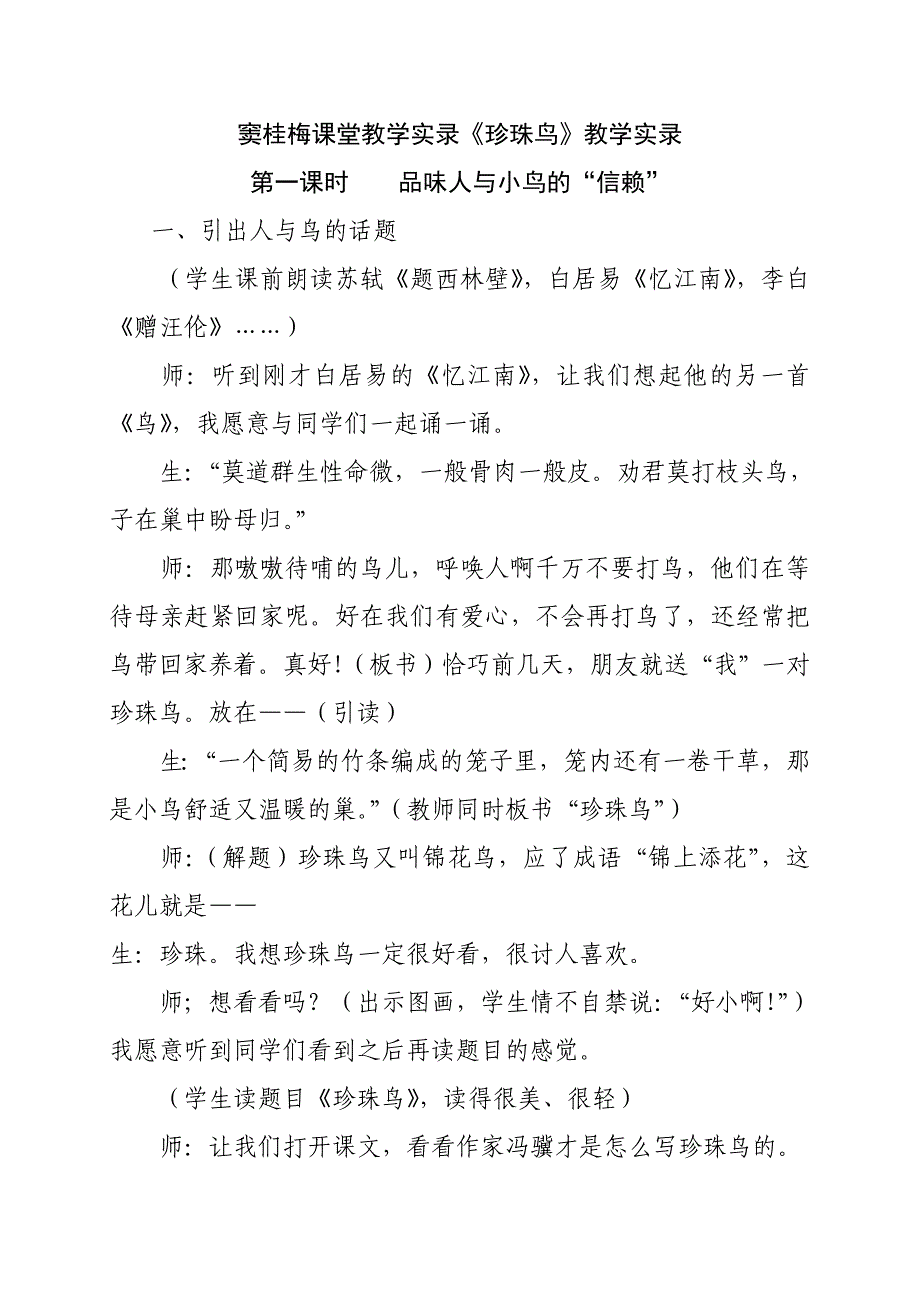 窦桂梅课堂教学实录《珍珠鸟》教学实录
第一课时　　品味人与小鸟的“信赖”
一、引出人与鸟的话题
（学生课前朗读苏轼《题西林壁》，白居易《忆江南》，李白
《赠汪伦》……）
师：听到刚才白居易的《忆江南》，让我们想起他的另一首
《鸟》，我愿意与同学们一起诵一诵。
生：“莫道群生性命微，一般骨肉一般皮。劝君莫打枝头鸟，
子在巢中盼母归。”
师：那嗷嗷待哺的鸟儿，呼唤人啊千万不要打鸟，他们在等
待母亲赶紧回家呢。好在我们有爱心，不会再打鸟了，还经常把
鸟带回家养着。真好！（板书）恰巧前几天，朋友就送“我”一对
珍珠鸟。放在——（引读）
生：“一个简易的竹条编成的笼子里，笼内还有一卷干草，那
是小鸟舒适又温暖的巢。”（教师同时板书“珍珠鸟”）
师：（解题）珍珠鸟又叫锦花鸟，应了成语“锦上添花”，这
花儿就是——
生：珍珠。我想珍珠鸟一定很好看，很讨人喜欢。
师；想看看吗？（出示图画，学生情不自禁说：“好小啊！”）
我愿意听到同学们看到之后再读题目的感觉。
（学生读题目《珍珠鸟》，读得很美、很轻）
师：让我们打开课文，看看作家冯骥才是怎么写珍珠鸟的。